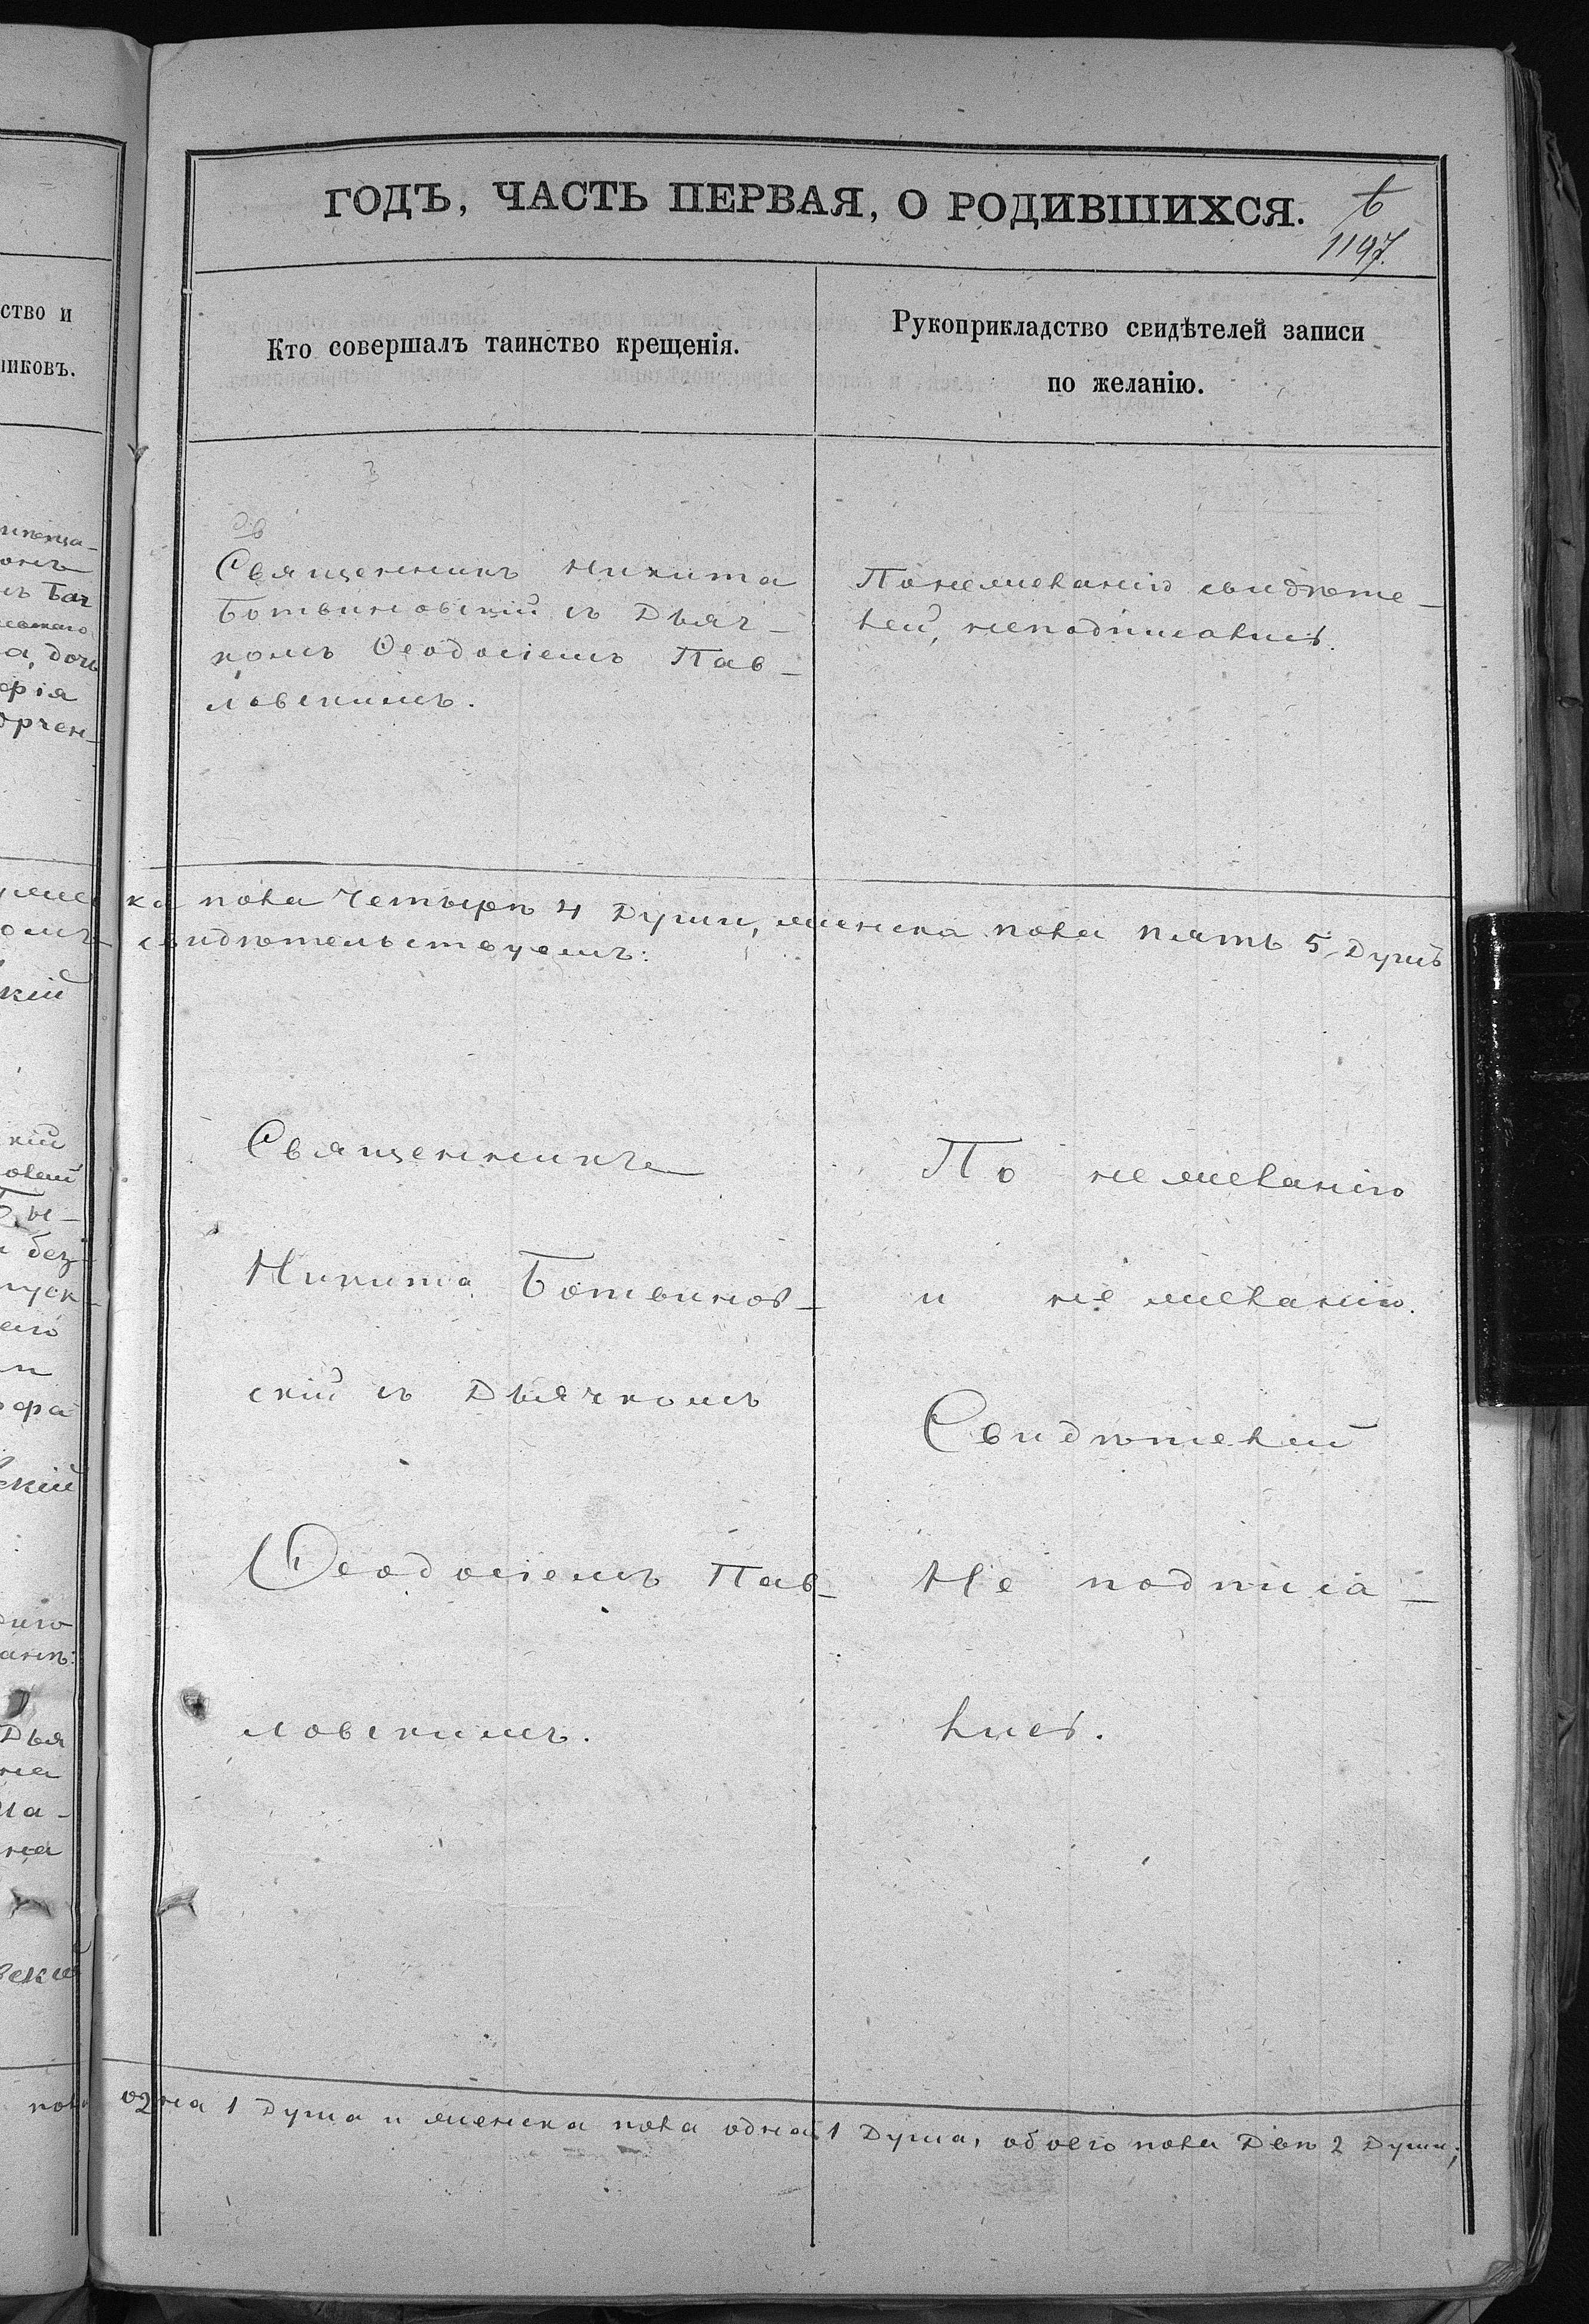 ГОДЪ, ЧАСТЬ ПЕРВАЯ, О РОДИВШИХСЯ.
6
1197.
ство и
никовъ.
Кто совершалъ таинство крещенія.
Рукоприкладство свидѣтелей записи
по желанію.
Священникъ Никита
Ботвиновскій съ Дьяч-
комъ Ѳеодосіемъ Пав-
ловскимъ.
По нежеланію свидѣте-
лей, неподписались.
ка пола Четырѣ 4 Души, женска пола пять 5 Душъ
свидѣтельствуемъ:
Священникъ
Никита Ботвинов-
скій съ Дьячкомъ
Ѳеодосіемъ Пав-
ловскимъ.
По не желанію
и не желанію.
Свидѣтелей
Не подписа-
лись.
пола одна 1 Душа и женска пола одна 1 Душа, обоего пола Двѣ 2 Души;